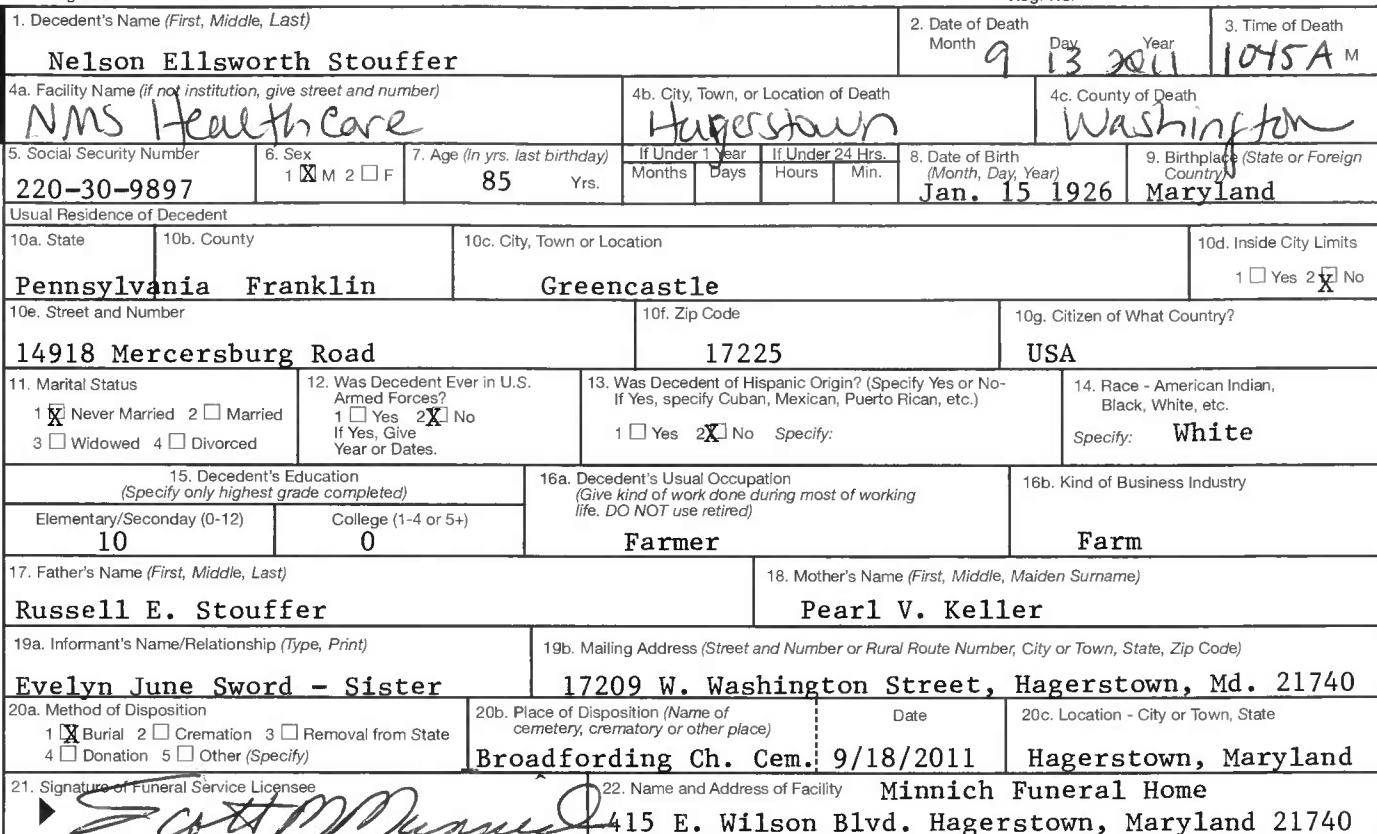 1. Decedent's Name (First, Middle, Last)
Nelson Ellsworth Stouffer
2. Date of Death
Month Day Year
9 13 2011
3. Time of Death
1045 A M
4a. Facility Name (if not institution, give street and number)
NMS Healthcare
4b. City, Town, or Location of Death
Hagerstown
4c. County of Death
Washington
5. Social Security Number
220-30-9897
6. Sex
1 X M 2 ☐ F
7. Age (In yrs. last birthday)
85 Yrs.
If Under 1 Year
Months Days
If Under 24 Hrs.
Hours Min.
8. Date of Birth
(Month, Day, Year)
Jan. 15 1926
9. Birthplace (State or Foreign
Country)
Maryland
Usual Residence of Decedent
10a. State
Pennsylvania
10b. County
Franklin
10c. City, Town or Location
Greencastle
10d. Inside City Limits
1 ☐ Yes 2 X No
10e. Street and Number
14918 Mercersburg Road
10f. Zip Code
17225
10g. Citizen of What Country?
USA
11. Marital Status
1 X Never Married 2 ☐ Married
3 ☐ Widowed 4 ☐ Divorced
12. Was Decedent Ever in U.S.
Armed Forces?
1 ☐ Yes 2 X No
If Yes, Give
Year or Dates.
13. Was Decedent of Hispanic Origin? (Specify Yes or No-
If Yes, specify Cuban, Mexican, Puerto Rican, etc.)
1 ☐ Yes 2 X No Specify:
14. Race - American Indian,
Black, White, etc.
Specify: White
15. Decedent's Education
(Specify only highest grade completed)
Elementary/Seconday (0-12)
10
College (1-4 or 5+)
0
16a. Decedent's Usual Occupation
(Give kind of work done during most of working
life. DO NOT use retired)
Farmer
16b. Kind of Business Industry
Farm
17. Father's Name (First, Middle, Last)
Russell E. Stouffer
18. Mother's Name (First, Middle, Maiden Surname)
Pearl V. Keller
19a. Informant's Name/Relationship (Type, Print)
Evelyn June Sword - Sister
19b. Mailing Address (Street and Number or Rural Route Number, City or Town, State, Zip Code)
17209 W. Washington Street, Hagerstown, Md. 21740
20a. Method of Disposition
1 X Burial 2 ☐ Cremation 3 ☐ Removal from State
4 ☐ Donation 5 ☐ Other (Specify)
20b. Place of Disposition (Name of
cemetery, crematory or other place)
Broadfording Ch. Cem.
Date
9/18/2011
20c. Location - City or Town, State
Hagerstown, Maryland
21. Signature of Funeral Service Licensee
Scott M Minnich
22. Name and Address of Facility Minnich Funeral Home
415 E. Wilson Blvd. Hagerstown, Maryland 21740